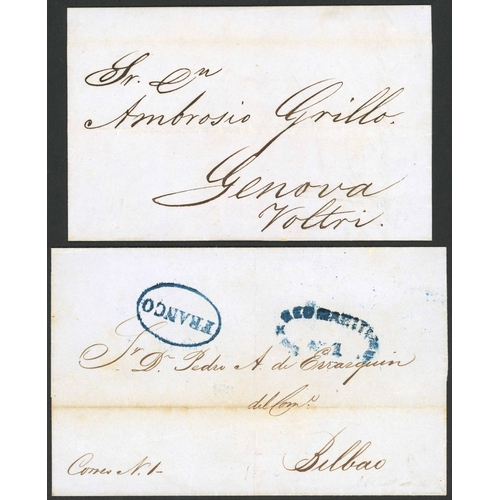 Sr. Dn
Ambrosio Grillo.
Genova
Voltri.
FRANCO
No. 1
Sr. Dn. Pedro A. de Errasquin
del Como.
Bilbao
Correo N. 1